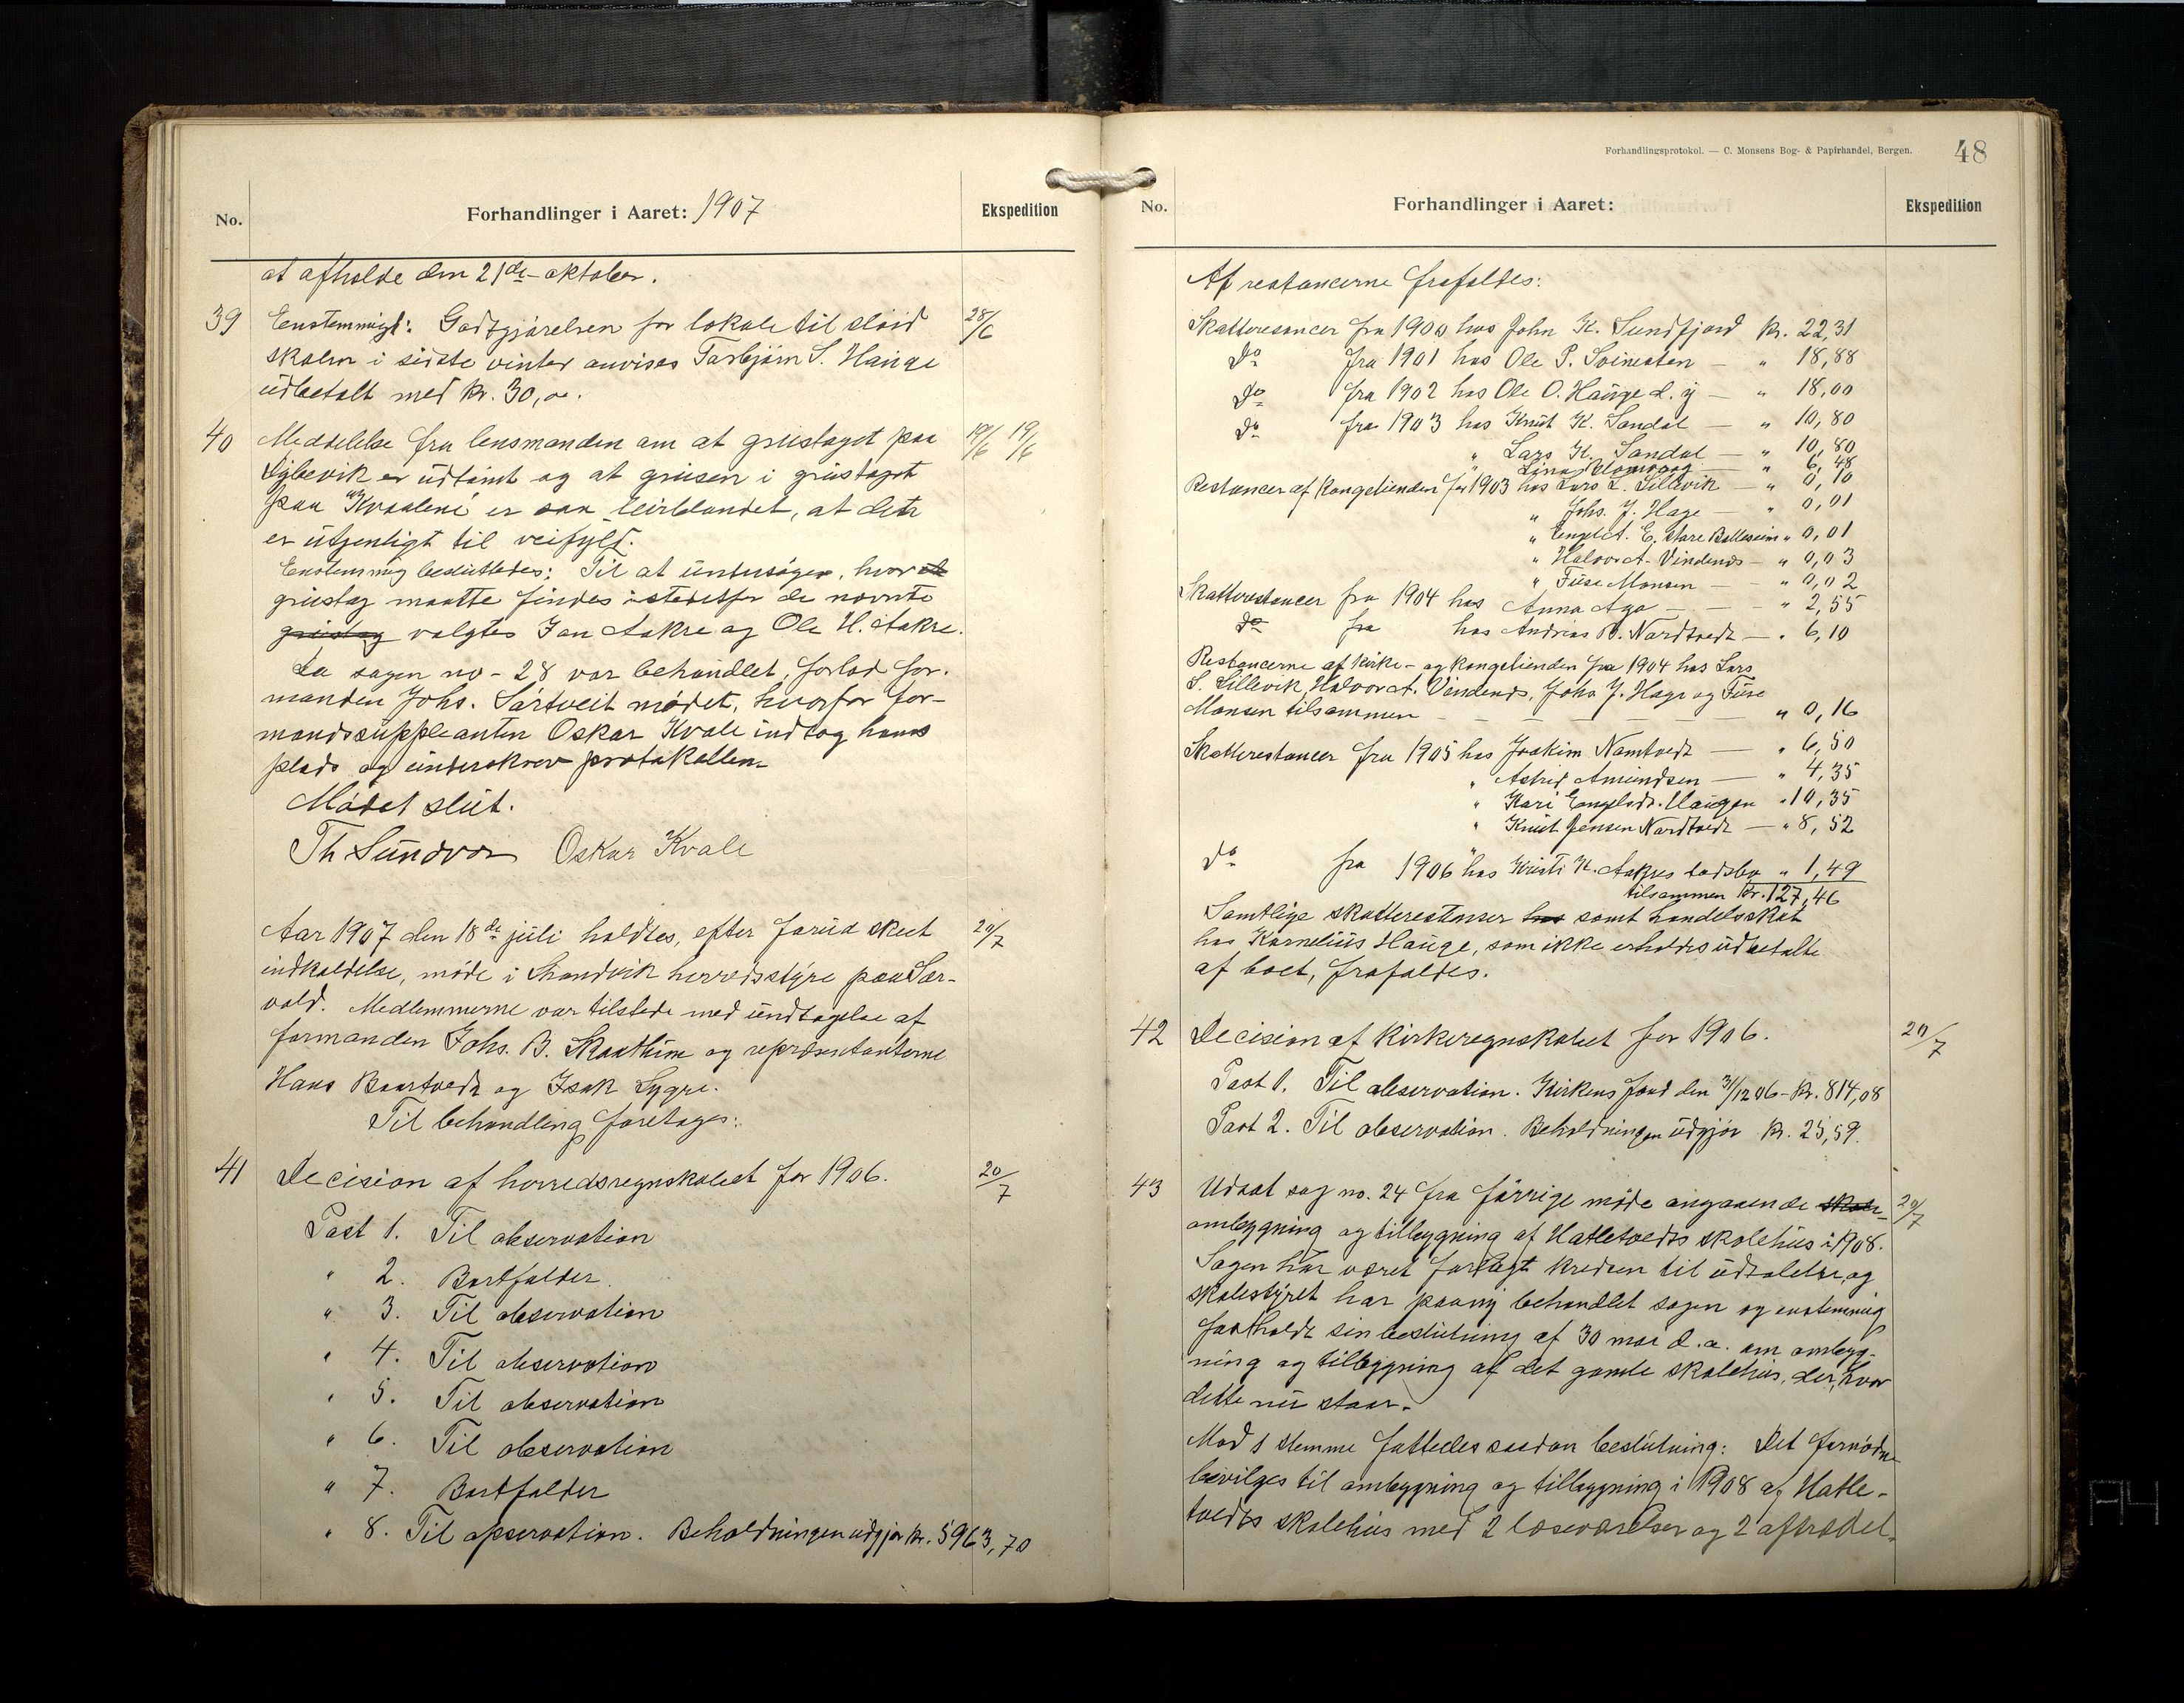 No.
Forhandlinger i Aaret: 1907
Ekspedition
at afholde den 21de oktober.
39 Eenstemmigt: Godtgjørelsen for lokale til sløid 28/6
skolen i sidste vinter anvises Torbjørn S. Hauge
udbetalt med kr. 30,00.
40 Meddelelse fra lensmanden om at grustaget paa 19/6 19/6
er udtømt og at grusen i grustaget
paa "Kvaalene" er saa leirblandet, at den
er utjenligt til veifyld.
Enstemmig besluttedes: Til at undersøge, hvor
grustag maatte findes istedetfor de nævnte
grustag valgtes Jan Aakre og Ole H. Aakre.
Da sagen no - 28 var behandlet, forlod for-
manden Johs. Sørtveit mødet, hvorfor for-
mandssuppleanten Oskar Kvale indtog hans
plads og underskrev protokollen.
Mødet slut.
Th Sundvor Oskar Kvale
Aar 1907 den 18de juli holdtes, efter forud skeet 20/7
indkaldelse, møde i Strandvik herredsstyre paa Sær-
vold. Medlemmerne var tilstede med undtagelse af
formanden Johs. B. Skaathun og repræsentanterne
Hans Baartvedt og Isak Lygre.
Til behandling foretages:
41 Decision af herredsregnskabet for 1906. 20/7
Post 1. Til observation
" 2. Bortfalder.
" 3. Til observation
" 4. Til observation
" 5. Til observation
" 6. Til observation
" 7. Bortfalder
" 8. Til opservation. Beholdningen udgjør kr. 5963,70
Forhandlingsprotokol. — C. Monsens Bog- & Papirhandel, Bergen. 48
No.
Forhandlinger i Aaret:
Ekspedition
Af restancerne frafaldes:
Skatteresancer fra 1900 hos John K. Sundfjord kr. 22,31
do fra 1901 hos Ole P. Svinesten — " 18,88
do fra 1902 hos Ole O. Hauge d. y — " 18,00
do fra 1903 hos Knut K. Sandal — " 10,80
" Lars K. Sandal — " 10,80
" Lina — " 6,48
Restancer af kongetienden for 1903 hos Lars L. Lillevik — " 0,10
" Johs. J. Hage — " 0,01
" Engel A. E. Store Balleseim " 0,01
" Halvor A. Vindenes — " 0,03
" Fuse Monsen — " 0,02
Skatterestancer fra 1904 hos Anna Aga — — " 2,55
do fra hos Andrias B. Nordtvedt — " 6,10
Restancerne af kirke- og kongetienden fra 1904 hos Lars
L. Lillevik, Halvor A. Vindenes, Johs J. Hage og Fuse
Monsen tilsammen — — — — — " 0,16
Skatterestancer fra 1905 hos Joakim Namtvedt — " 6,50
" Astrid Amundsen — " 4,35
" Kari Engelsdt. Haugen " 10,35
" Knut Jensen Nordtvedt — " 8,52
do fra 1906 hos Kristi K. Aakres dødsbo " 1,49
tilsammen Kr. 127,46
Samtlige skatterestanser hos samt handelsskat
hos Kornelius Hauge, som ikke erholdes udbetalte
af boet, frafaldes.
42 Decision af kirkeregnskabet for 1906. 20/7
Post 1. Til observation. Kirkens fond den 31/12 06 - kr. 814,08
Post 2. Til observation. Beholdningen udgjør kr. 25,59.
43 Udsat sag no. 24 fra forrige møde angaaende skole- 20/7
ombygning og tilbygning af Hatletvedts skolehus i 1908.
Sagen har været forelagt kredsen til udtalelse, og
skolestyret har paany behandlet sagen og enstemmig
fastholdt sin beslutning af 30 mai d.a. om ombyg-
ning og tilbygning af det gamle skolehus, der, hvor
dette nu staar.
Mod 1 stemme fattedes saadan beslutning: Det fornødne
bevilges til ombygning og tilbygning i 1908 af Hatle-
tvedts skolehus med 2 læseværelser og 2 aftrædel-